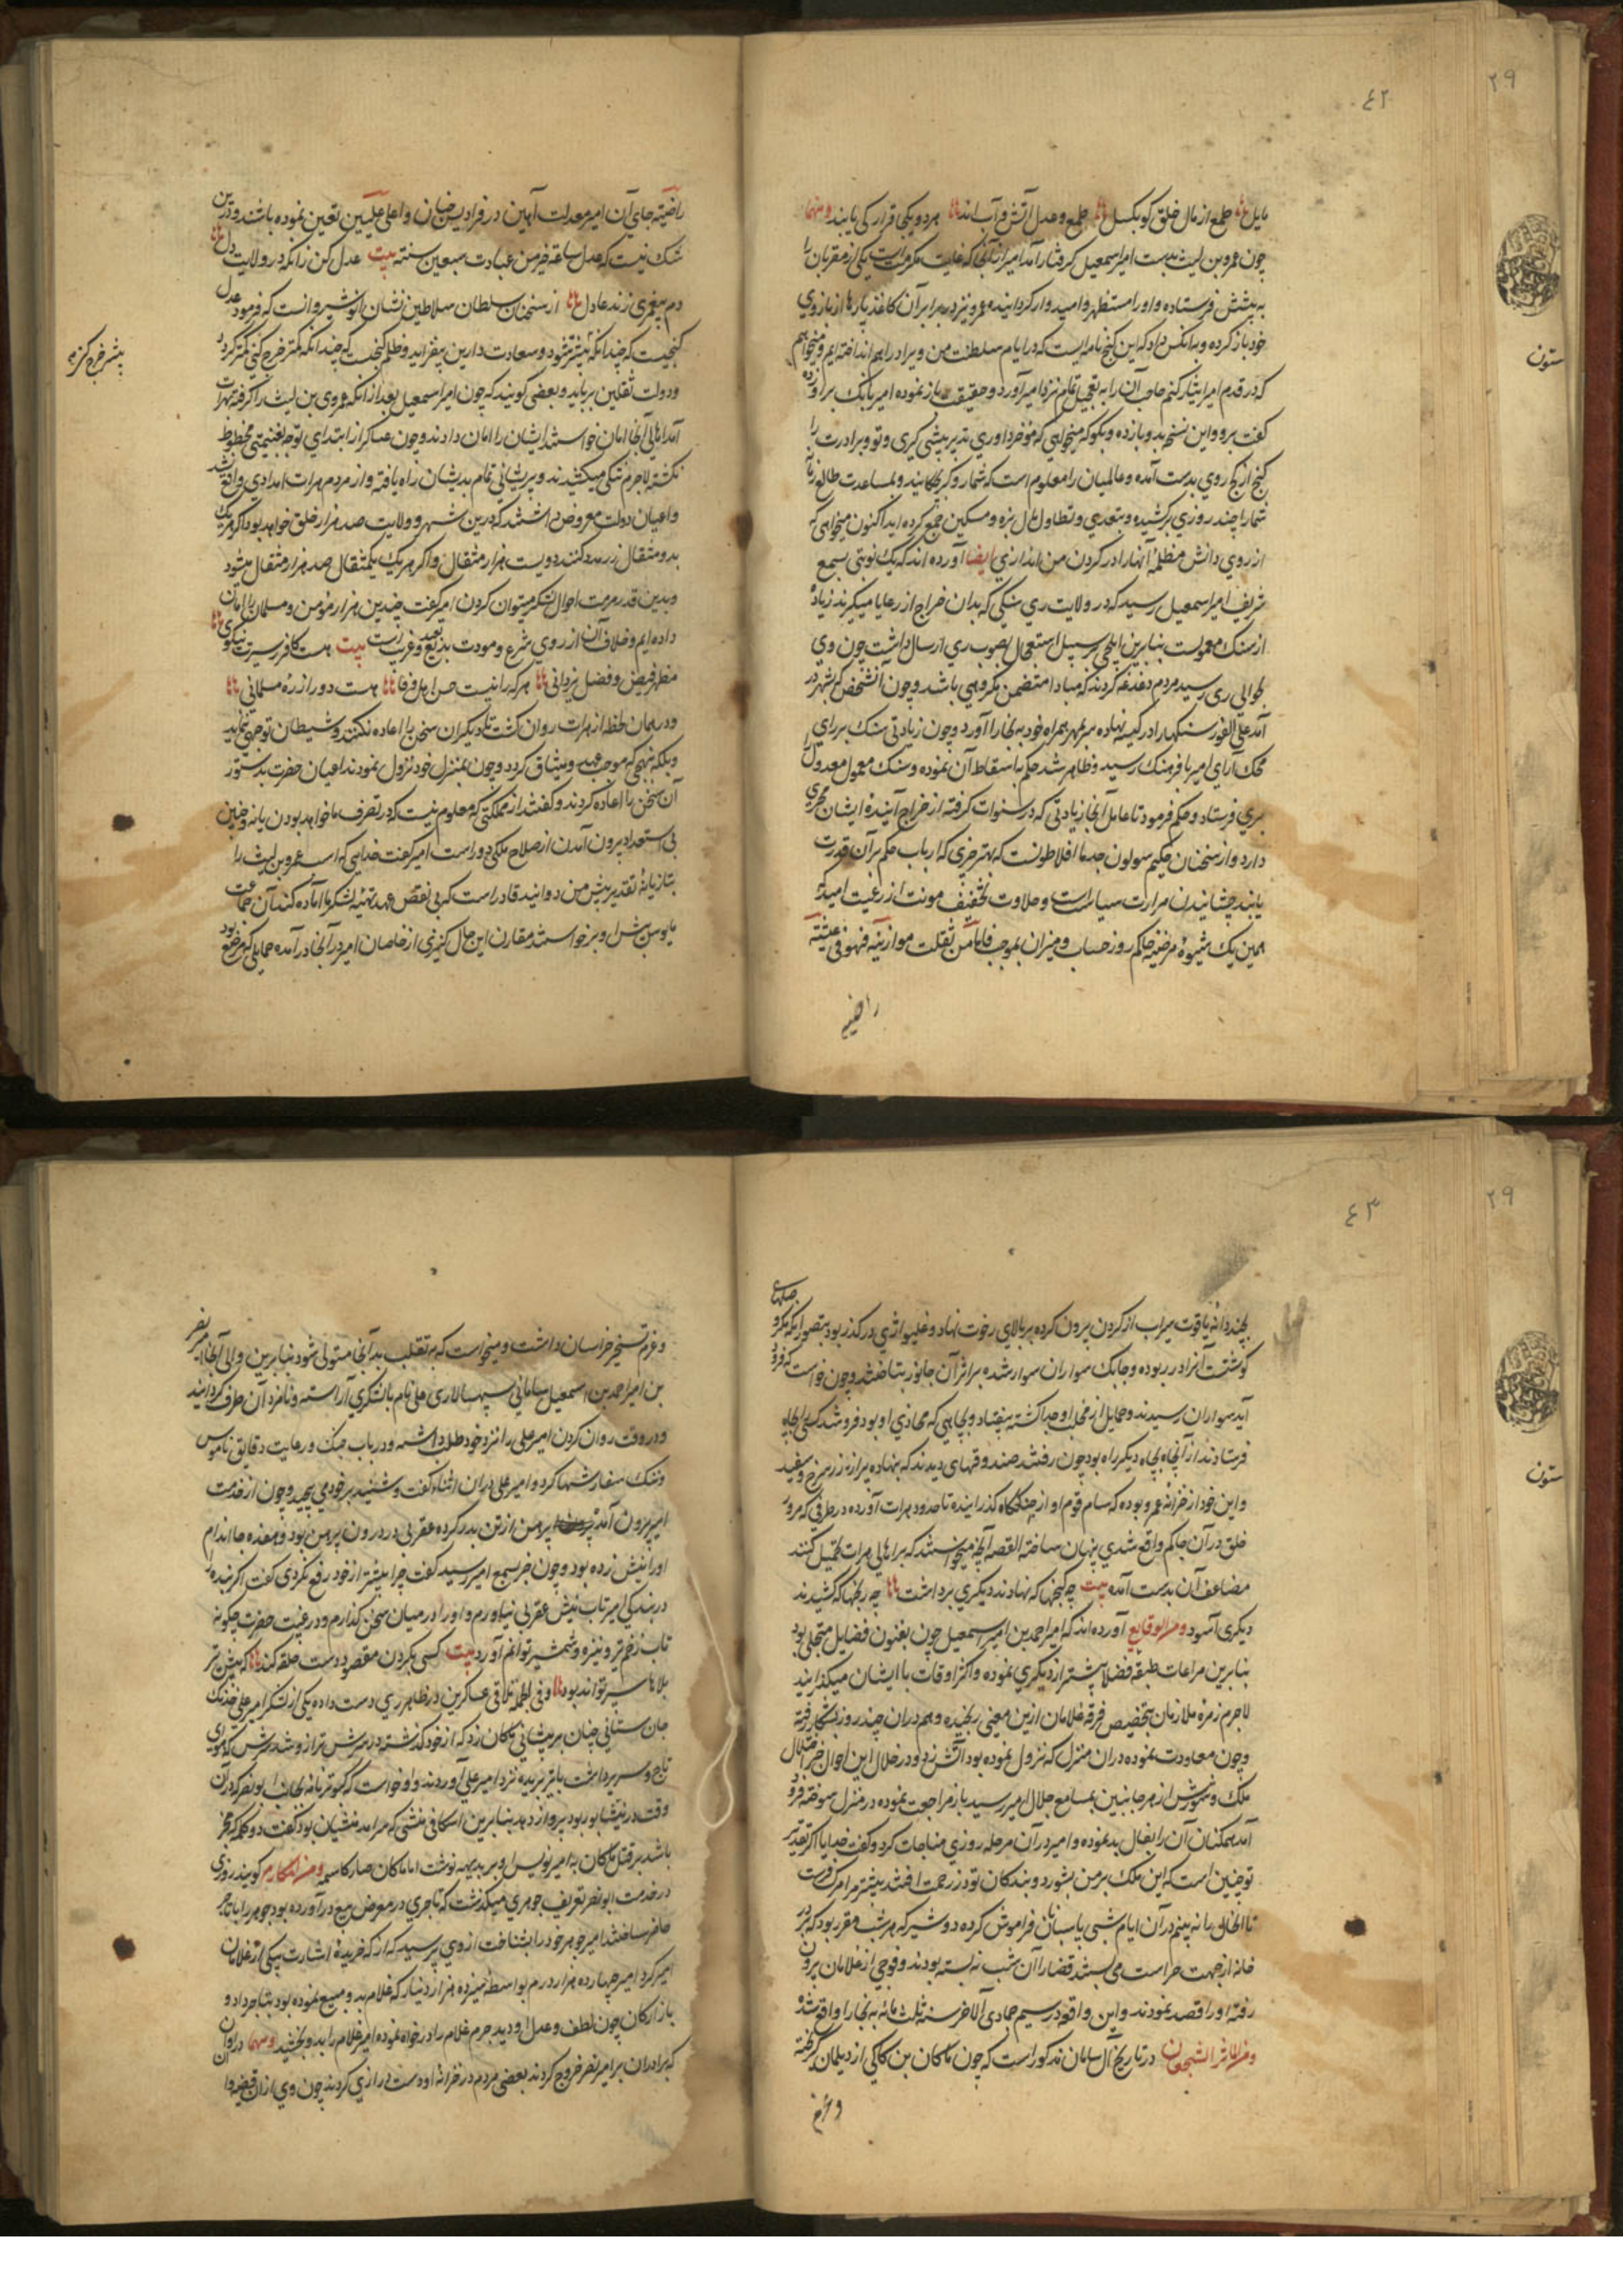 ٢٩
٤٢
مایل طمع از مال خلق کو بکسل طمع و عدل آتش و آب اند هر دو یکجا قرار کی یابند ومنها
چون عمرو بن لیث بدست امیر اسمعیل گرفتار آمد امیر از آنجا که غایت مکرمت است یکی از مقربان را
به پیشش فرستاده و او را مستظهر و امیدوار گردانیده عمرو نیز در برابر آن کاغذ پارها از بازوی
خود باز کرده و بدانکس داد که این گنج نامه است که در ایام سلطنت من و برادرانم انداخته ایم و میخواهم
که در قدم امیر ایثار کنم حاجب آن را به تعجیل تمام نزد امیر آورد و حقیقت باز نموده امیر بانک بر او زده
گفت برو و این نسخه بدو باز ده و بگو که میخواهی که مزخرف آوری تدبیر پیشی گیری و تو و برادرت را
گنج از کج روی بدست آمده و عالمیان را معلوم است که شما رویگر بچکانید و بمساعدت طالع
شما را چند روزی برکشیده و بتعدی و تطاول مال بزه و مسکین جمع کرده اید اکنون میخواهی که
از روی دانش مظلمه آنها را در گردن من اندازی ایضا آورده اند که یک نوبتی بسمع
شریف امیر اسمعیل رسید که در ولایت ری سنگی که بدان خراج از رعایا میگیرند زیاده
از سنگ معمولست بنابرین ایلچی بر سبیل استعجال بصوب ری ارسال داشت چون وی
بحوالی ری رسید مردم دغدغه کردند که مبادا متضمن مکروهی باشد و چون آنشخص بشهر در
آمد علی الفور سنگها را در کیسه نهاده سر بمهر همراه خود به بخارا آورد و چون زیادتی سنگ بر رای
محک آرای امیر با فرهنگ رسید و ظاهر شد حکم باسقاط آن نموده و سنگ معمول معدول را
بری فرستاد و حکم فرمود تا عامل آنجا زیادتی که در سنوات گرفته از خراج آینده ایشان مجری
دارد و از سخنان حکیم سولون جد ما افلاطونست که بهتر چیزی که ارباب حکم بر آن قدرت
یابند چشانیدن مرارت سیاست است و حلاوت تخفیف مونت از رعیت امید که
همین یک شیوه مرضیه حاکم روز حساب و میزان بموجب فاما من ثقلت موازینه فهو فی عیشة
راضیه
ستون
راضیة جای آن امیر معدلت آیین در فرادیس جنان و اعلی علیین تعین نموده باشند و درین
شک نیست که عدل ساعة خیر من عبادت سبعین سنته بیت عدل کن زانکه در ولایت دل
دم پیغمبری زند عادل از سخنان سلطان سلاطین نشان انوشیروانست که فرمود عدل
گنجیست که چندانکه بیشتر شود و سعادت دارین بیفزاید و ظلم گنجیست که چندانکه کمتر خرج کنی کمتر گردد
ودولت ثقلین برباید و بعضی گویند که چون امیر اسمعیل بعد از آنکه عمروی بن لیث را گرفته بهرات
آمد اهالی آنجا امان خواستند ایشان را امان دادند و چون عساکر از ابتدای توجه بغنیمتی محظوظ
نگشته لاجرم تنگی میکشیدند و پریشانی تمام بدیشان راه یافته و از مردم هرات امدادی واقع نشد
واعیان دولت معروض داشتند که درین شهر و ولایت صد هزار خلق خواهد بود اگر هر یک
بدو مثقال زر مدد کنند دویست هزار مثقال و اگر هر یک یکمثقال صد هزار مثقال میشود
وبدین قدر مرمت احوال لشکر میتوان کردن امیر گفت چندین هزار مؤمن و مسلمان را امان
داده ایم و خلاف آن از روی شرع و مودت بدیع بعید و غریب است بیت هست کافر سیرت نیکوی
مظهر فیض و فضل یزدانی هر که را نیست حس اهل وفا هست دور از ره مسلمانی
ودر همان لحظه از هرات روان گشت تا دیگران سخن را اعاده نکنند و شیطان توجهی ننماید
وبلکه نهجی که موجب عهد و میثاق گردد و چون بمنزل خود نزول نمودند اعیان حضرت بدستور
آن سخن را اعاده کردند و گفتند از مملکتی که معلوم نیست که در تصرف ما خواهد بودن یا نه و چنین
بی استعداد بیرون آمدن از صلاح ملکی دور است امیر گفت خدایی که اسب عمرو بن لیث را
بتازیانه تقدیر پیش من دوانید قادر است که بی نقض عهد تهیه لشکر ما آماده کند آن جماعت
مایوس پیش او برخواستند مقارن این حال کنیزی از خاصان امیر در آنجا درآمده حمایلی که مرصع بود
بیشتر خرج کنی
٢٩
٤٣
بچند دانه یاقوت سیراب از گردن بیرون کرده بر بالای رخوت نهاد و غلیواژی در گذر بود بتصور آنکه مگر
گوشتست آنرا در ربوده و چابک سواران سوار شده بر اثر آن جانور بتاختند و چون خواست که فرود
آید سواران رسیدند و حمایل از مخلب او جدا گشته بیفتاد و بچاهی که محاذی او بود فروشد کسی بچاه
فرستادند از آنچاه بچاه دیگر راه بود چون رفتند صندوقهای دیدند که بنهاده پر از زر سرخ و سفید
واین خود از خزانه عمرو بوده که سام قوم او از جنگگاه گذرانیده تا حدود هرات آورده در طرفی که مرور
خلق در آن جا کم واقع شدی پنهان ساخته القصه آنچه میخواستند که بر اهالی هرات تحمیل کنند
مضاعف آن بدست آمده بیت چه گنجها که نهادند دیگری برداشت چه رنجها که کشیدند
دیگری آسود ومن الوقایع آورده اند که امیر احمد بن امیر اسمعیل چون بفنون فضایل متحلی بود
بنابرین مراعات طبقه فضلا بیشتر از دیگری نموده و اکثر اوقات با ایشان میگذرانید
لاجرم زمره ملازمان بتخصیص فرقه غلامان ازین معنی رنجیده و هم دران چند روز بشکار رفته
وچون معاودت نموده دران منزل که نزول نموده بود آتش زد و در خلال این احوال خبر اختلال
ملک و شورش از هر جانبین بمسامع جلال امیر رسید باز مراجعت نموده در منزل سوخته فرود
آمد همگنان آن را بفال بد نموده و امیر در آن مرحله روزی مناجات کرد و گفت خدایا اگر تقدیر
تو چنین است که این ملک بر من بشورد و بندگان تو در زحمت افتند بیشتر مرا مرگ فرست
تا این حال را نه بینم در آن ایام شبی پاسبانان فراموش کرده دو شیر که هر شب مقرر بود که بر در
خانه از جهت حراست می بستند قضا را آن شب نه بسته بودند و فوجی از غلامان برون
رفته او را قصد نمودند و این واقعه در سیم جمادی الآخر سنه ثلث مائه به بخارا واقع شد
ومن المآثر الشجعان در تاریخ آل سامان مذکور است که چون ماکان بن کاکی از دیلمان گریخته
وعزم
ستون
وعزم تسخیر خراسان داشت و میخواست که به تغلب بدآنجا مستولی شود بنابرین والی آنجا امیر نصر
بن امیر احمد بن اسمعیل سامانی سپهسالاری علی نام با لشکری آراسته و نامزد آن طرف گردانید
ودر وقت روان کردن امیر علی را نزد خود طلب داشته و در باب جنگ و رعایت دقایق ناموس
وننگ سفارشها کرد و امیر علی در آن اثناء گفت و شنید بر خود می پیچید و چون از خدمت
امیر بیرون آمد پیرهن از تن بدر کرده عقربی در درون پیرهن بود و هفده جا اندام
او را نیش زده بود و چون خبر بسمع امیر رسید گفت چرا بیشتر از خود رفع نکردی گفت اگر بنده را
در بندگی امیر تاب نیش عقربی نیاورم و او را در میان سخن بگذارم و در غیبت حضرت چگونه
تاب زخم تیر و نیزه و شمشیر توانم آورد بیت کسی بگردن مقصود دست حلقه کند که پیش تیر
بلاها سپر تواند بود و فی الجمله تلاقی عسکرین در ظاهر ری دست داده یکی از لشکر امیر علی خدنگ
جان ستانی چنان بر پیشانی ماکان زد که از خود گذشت در سرش ترازو شد سرش که سودای
تاج و سریر داشت با تیر بریده نزد امیر علی آوردند و او خواست که کبوتر نامه بجانب ابو نصر که در آن
وقت در نیشابور بود پرواز دهد بنابرین اسکافی منشی که سرآمد منشیان بود گفت دو کلمه که مخبر
باشد بر قتل ماکان به امیر نویس او بر بدیهه نوشت اما ماکان صار کاسمه ومن المکارم گویند روزی
در خدمت ابو نصر تعریف جوهری میگذشت که تاجری در معرض بیع درآورده بود جوهر را با تاجر
حاضر ساختند امیر جوهر خود را بشناخت از وی پرسید که از که خریده اشارت بیکی از غلامان
امیر کرد امیر چهارده هزار درم بواسطه سیزده هزار دینار که غلام بدو مبیع نموده بود بتاجر داد و
بازارگان چون لطف و عدل او دید جرم غلام را درخواه نموده امیر غلام را بدو بخشید ومنها در اوان
که برادران بر امیر نصر خروج کردند بعضی مردم در خزانه او دست درازی کردند چون وی از آن قضیه وا